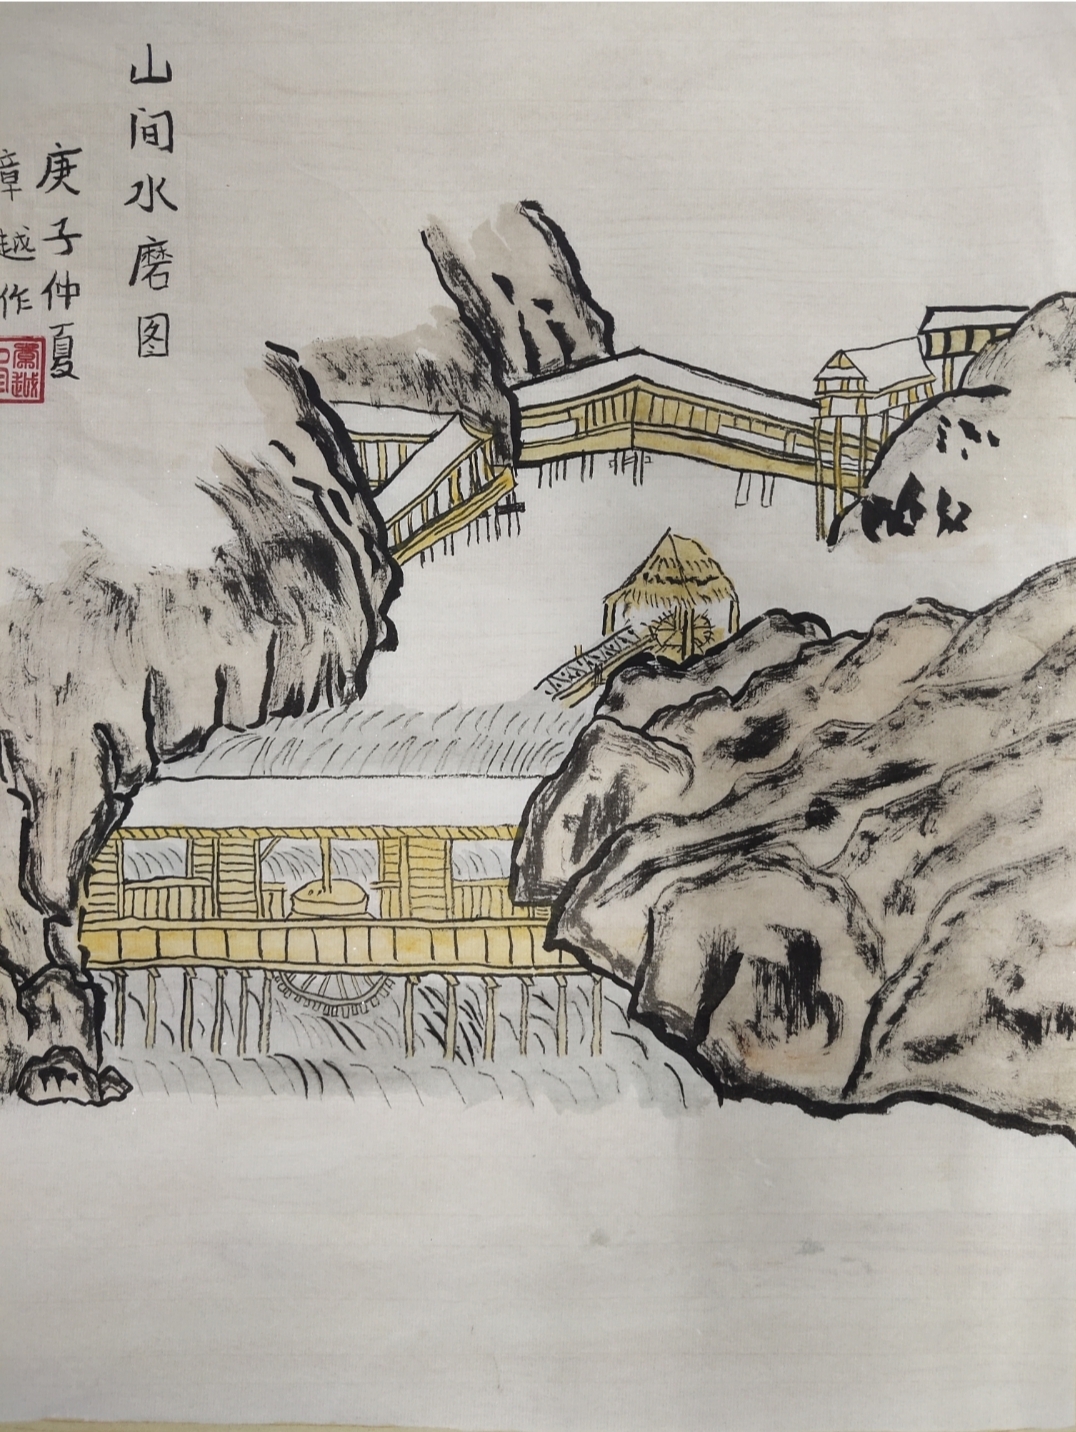 山间水磨图
庚子仲夏
章越作